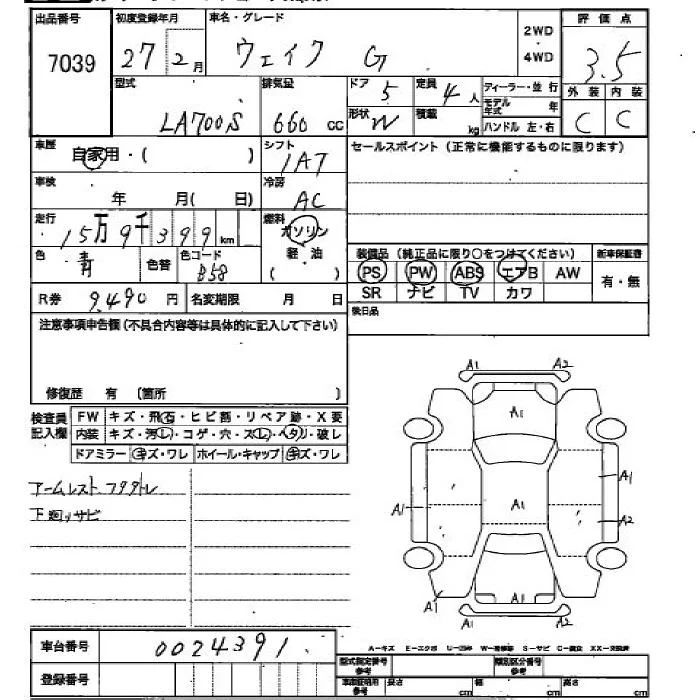 出品番号 初度登録年月 車名・グレード 2WD 評価点
7039 27年2月 ウェイク G 4WD 3.5
型式 排気量 ドア 5 定員 4人 ディーラー・並行 外装 内装
LA700S 660cc 形状 W 積載 kg モデル年式 年 ハンドル 左・右 C C
車歴 自家用・( ) シフト IAT セールスポイント(正常に機能するものに限ります)
車検 年 月( 日) 冷房 AC
走行 15万9千399km 燃料 ガソリン
色 青 色替 色コード B58 軽油 ( ) 装備品(純正品に限り○をつけてください) 新車保証書
PS PW ABS エアB AW 有・無
R券 9,490円 名変期限 月 日 SR ナビ TV カワ
注意事項申告欄(不具合内容等は具体的に記入して下さい) 後日品
修復歴 有 〔箇所 〕
検査員記入欄 FW キズ・飛石・ヒビ割・リペア跡・X要
内装 キズ・汚レ・コゲ・穴・スレ・ヘタリ・破レ
ドアミラー キズ・ワレ ホイール・キャップ キズ・ワレ
アームレストフタトレ
下廻リサビ
A1 A2
A1
A1
A1 A1 A2
A1 A1 A2
車台番号 0024391
A-キズ E-エクボ S-サビ
登録番号 型式指定番号 参考 類別区分番号 参考
長さ cm 幅 cm 高さ cm